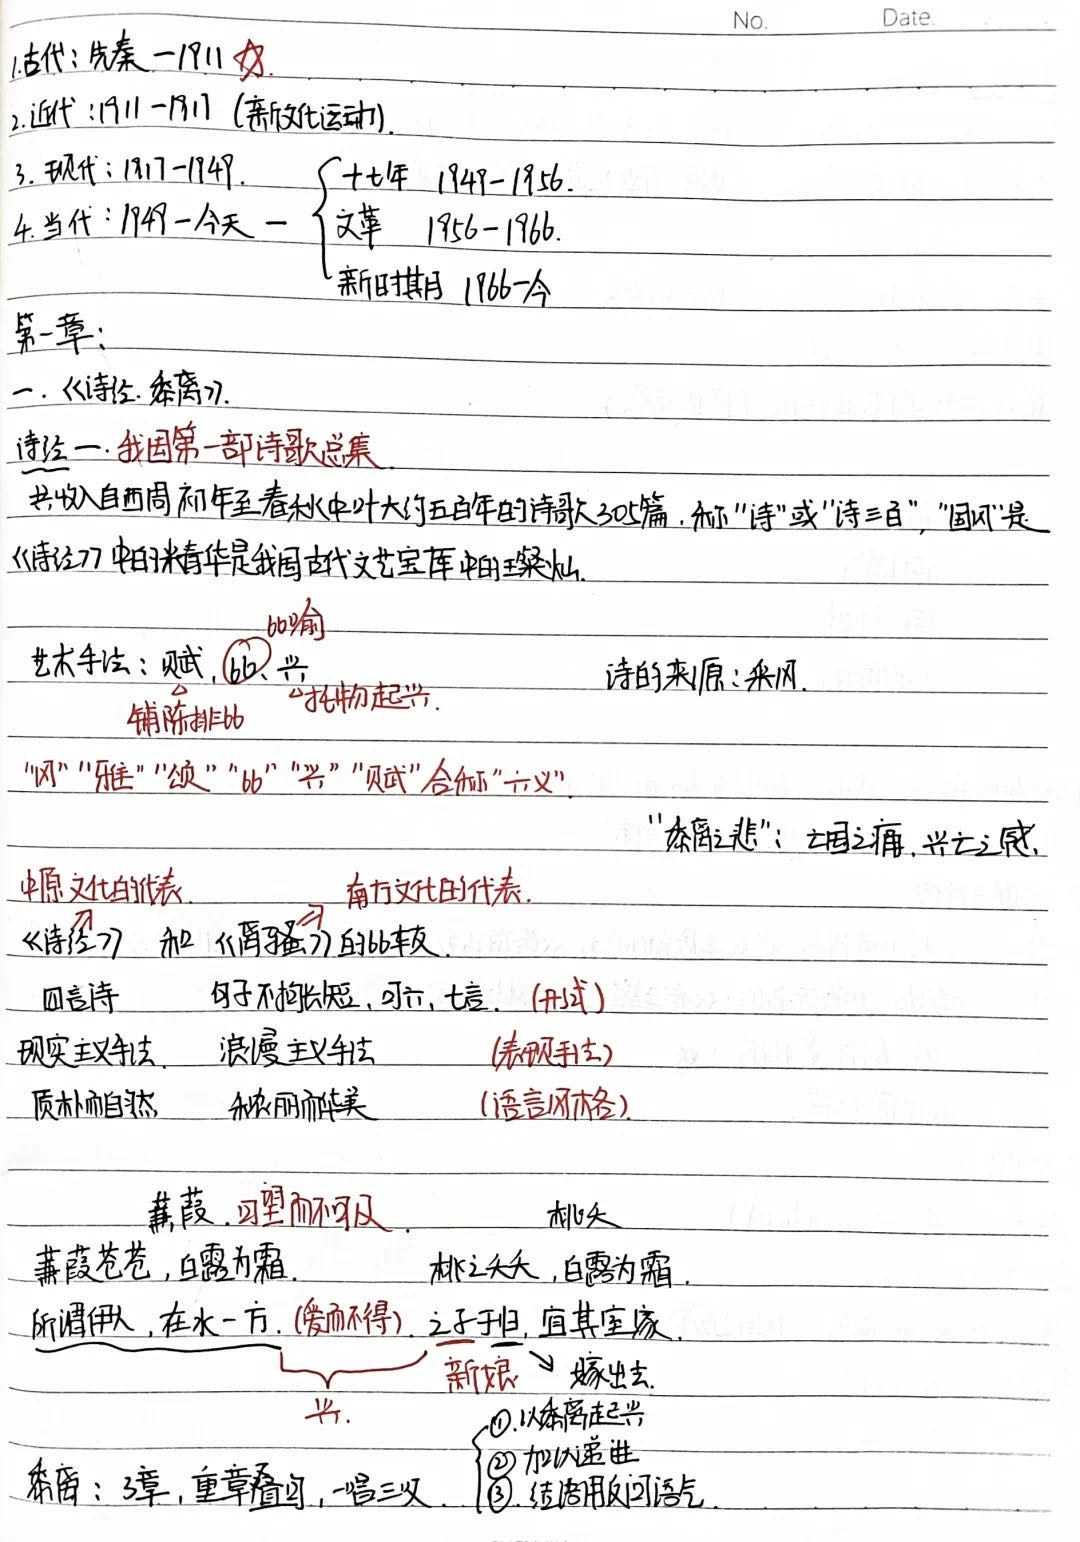 No. Date.
1.古代：先秦 — 1911 ☆
2.近代：1911 — 1917 (新文化运动).
3. 现代：1917—1949.
十七年 1949 — 1956.
4.当代：1949 — 今天 —
文革 1956 — 1966.
新时期 1966—今
第一章：
一.《诗经·黍离》.
诗经 — 我国第一部诗歌总集
共收入自西周初年至春秋中叶大约五百年的诗歌305篇，称"诗"或"诗三百"，"国风"是
《诗经》中的精华是我国古代文艺宝库中的璀璨.
比喻
艺术手法：赋，比、兴 诗的来源：采风.
铺陈排比 托物起兴.
"风""雅""颂""比""兴""赋"合称"六义".
"黍离之悲"：亡国之痛，兴亡之感.
中原文化的代表. 南方文化的代表.
《诗经》和《离骚》的比较.
四言诗 句子不拘长短，可六，七言. (形式)
现实主义手法. 浪漫主义手法 (表现手法)
质朴而自然 秾丽而华美 (语言风格).
蒹葭. 可望而不可及. 桃夭
蒹葭苍苍，白露为霜. 桃之夭夭，白露为霜.
所谓伊人，在水一方. (爱而不得). 之子于归，宜其室家.
新娘 嫁出去.
兴.
①.以黍离起兴
② 加以递进
黍离：3章，重章叠句，一唱三叹.
③.结语用反问语气.